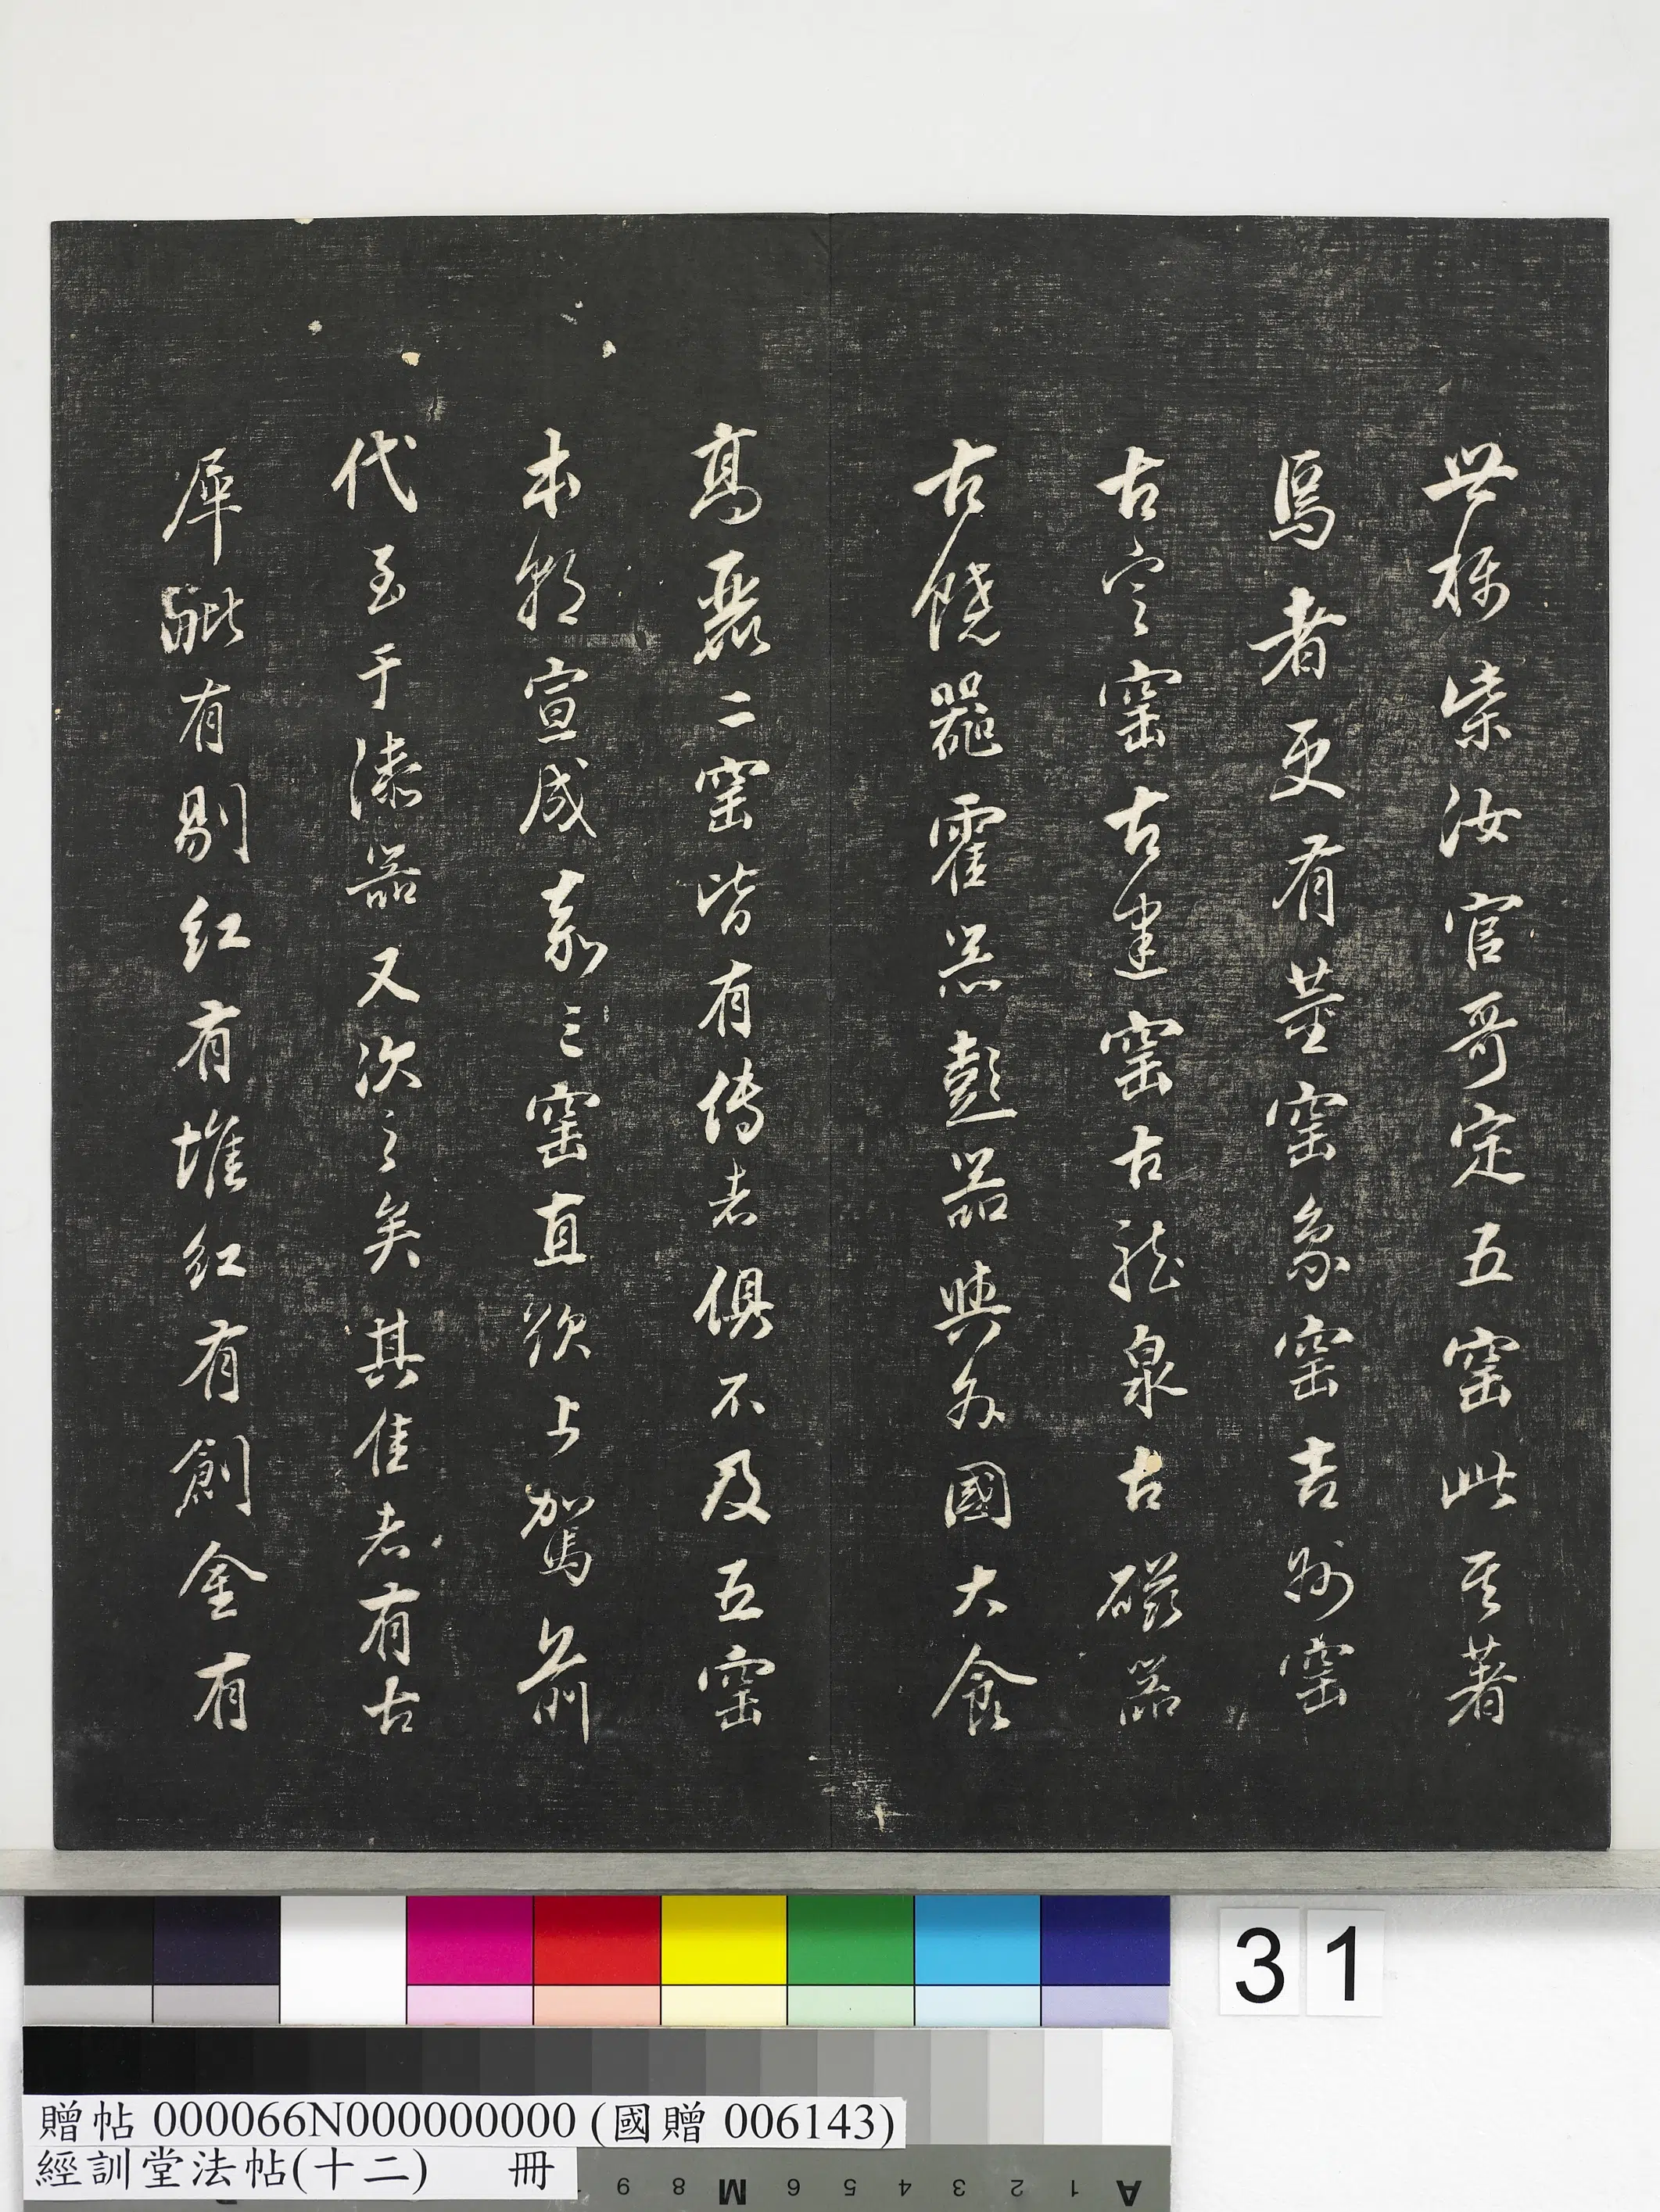 世称柴汝官哥定五窑此其著
焉者更有董窑象窑吉州窑
古定窑古建窑古龍泉古磁器
古饒器霍器彭器與外國大食
高麗二窑皆有傳者俱不及五窑
本朝宣成嘉三窑直欲上駕前
代至于漆器又次之矣其佳者有古
犀毗有剔红有堆红有創金有
31
贈帖 000066N000000000 (國贈 006143)
經訓堂法帖(十二) 冊
A 1 2 3 4 5 6 M 8 9